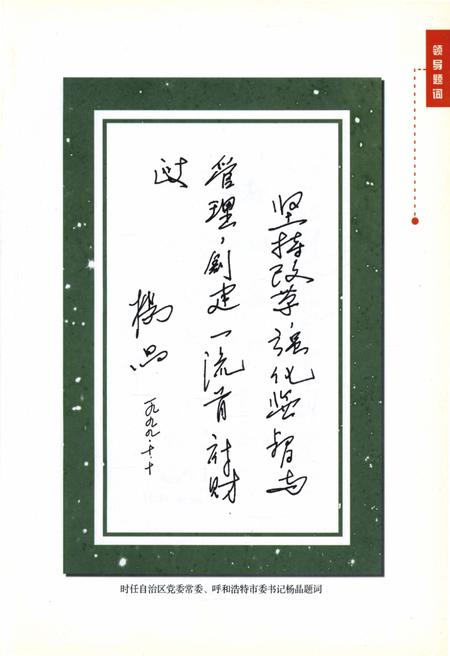 领导题词
坚持改革，强化监督与
管理，創建一流首府财
政
杨晶
一九九九.十.十
时任自治区党委常委、呼和浩特市委书记杨晶题词